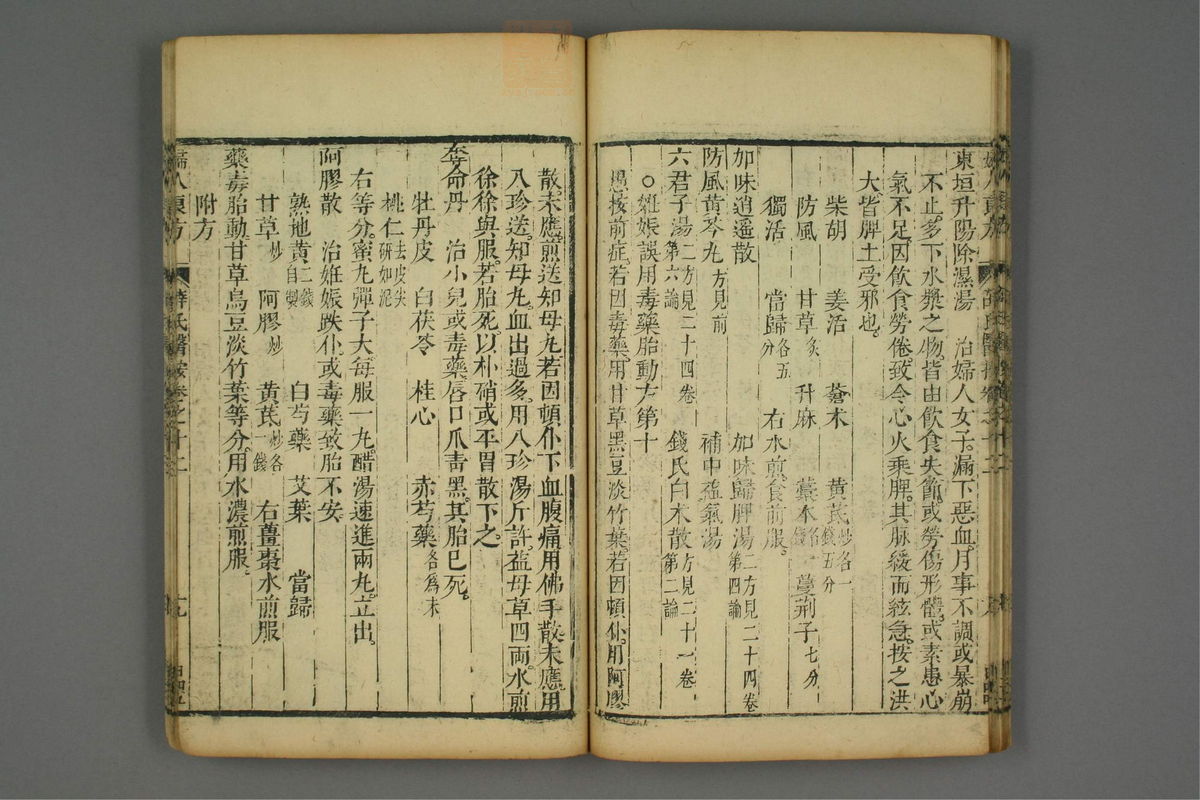 東垣升陽除濕湯　治婦人女子漏下惡血月事不調或暴崩
不止多下水漿之物皆由飲食失節或勞傷形體或素患心
氣不足因飲食勞倦致令心火乘脾其脉緩而絃急按之洪
大皆脾土受邪也
柴胡　羌活　蒼朮　黃芪炒各一錢五分
防風　甘草炙　升麻　藁本各一錢　蔓荆子七分
獨活　當歸各五分　右水煎食前服
加味逍遥散　加味歸脾湯二方見二十四卷第四論
防風黃芩丸方見前　補中益氣湯
六君子湯二方見二十四卷第六論　錢氏白朮散方見二十一卷第二論
○妊娠誤用毒藥胎動方第十
愚按前症若因毒藥用甘草黑豆淡竹葉若因頓仆用阿膠
散未應煎送知母丸若因頓仆下血腹痛用佛手散未應用
八珍送知母丸血出過多用八珍湯斤許益母草四兩水煎
徐徐與服若胎死以朴硝或平胃散下之
奪命丹　治小兒或毒藥唇口爪青黑其胎已死
牡丹皮　白茯苓　桂心　赤芍藥各爲末
桃仁去皮尖研如泥
右等分蜜丸彈子大每服一丸醋湯速進兩丸立出
阿膠散　治妊娠跌仆或毒藥致胎不安
熟地黃二錢自製　白芍藥　艾葉　當歸
甘草炒　阿膠炒　黃芪炒各一錢　右薑棗水煎服
藥毒胎動甘草烏豆淡竹葉等分用水濃煎服
附方
婦人良方　薛氏醫按卷之十二　十九